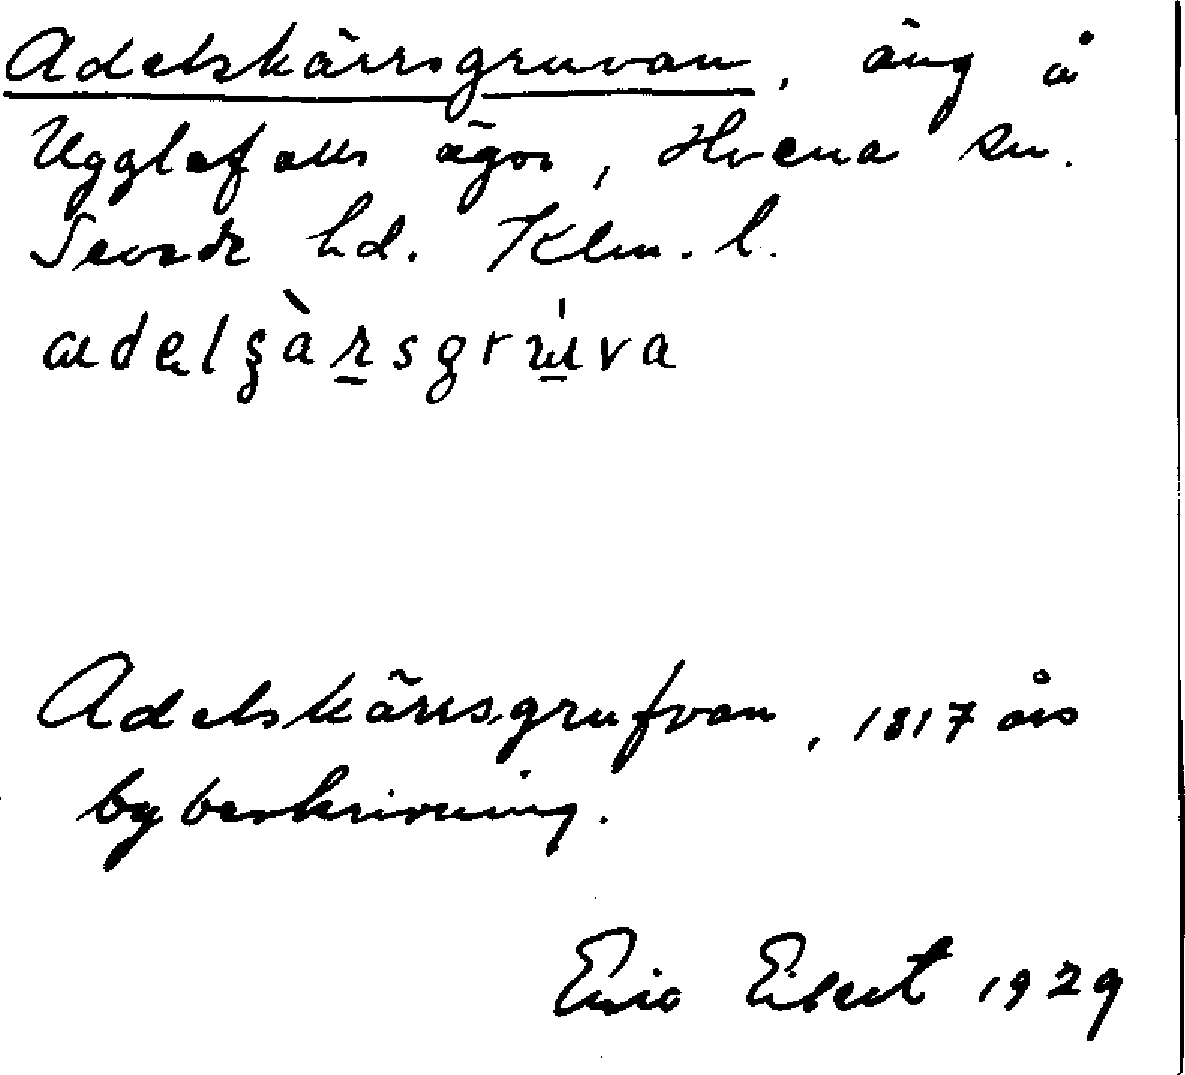 Adelskärrsgruvan, äng å
Ugglefalls ägor, Hvena sn.
Sevede hd. Klm. l.
adelsàrsgruva
Adelskärrsgrufvan, 1817 års
bybeskrivning.
Eric Elbert 1929